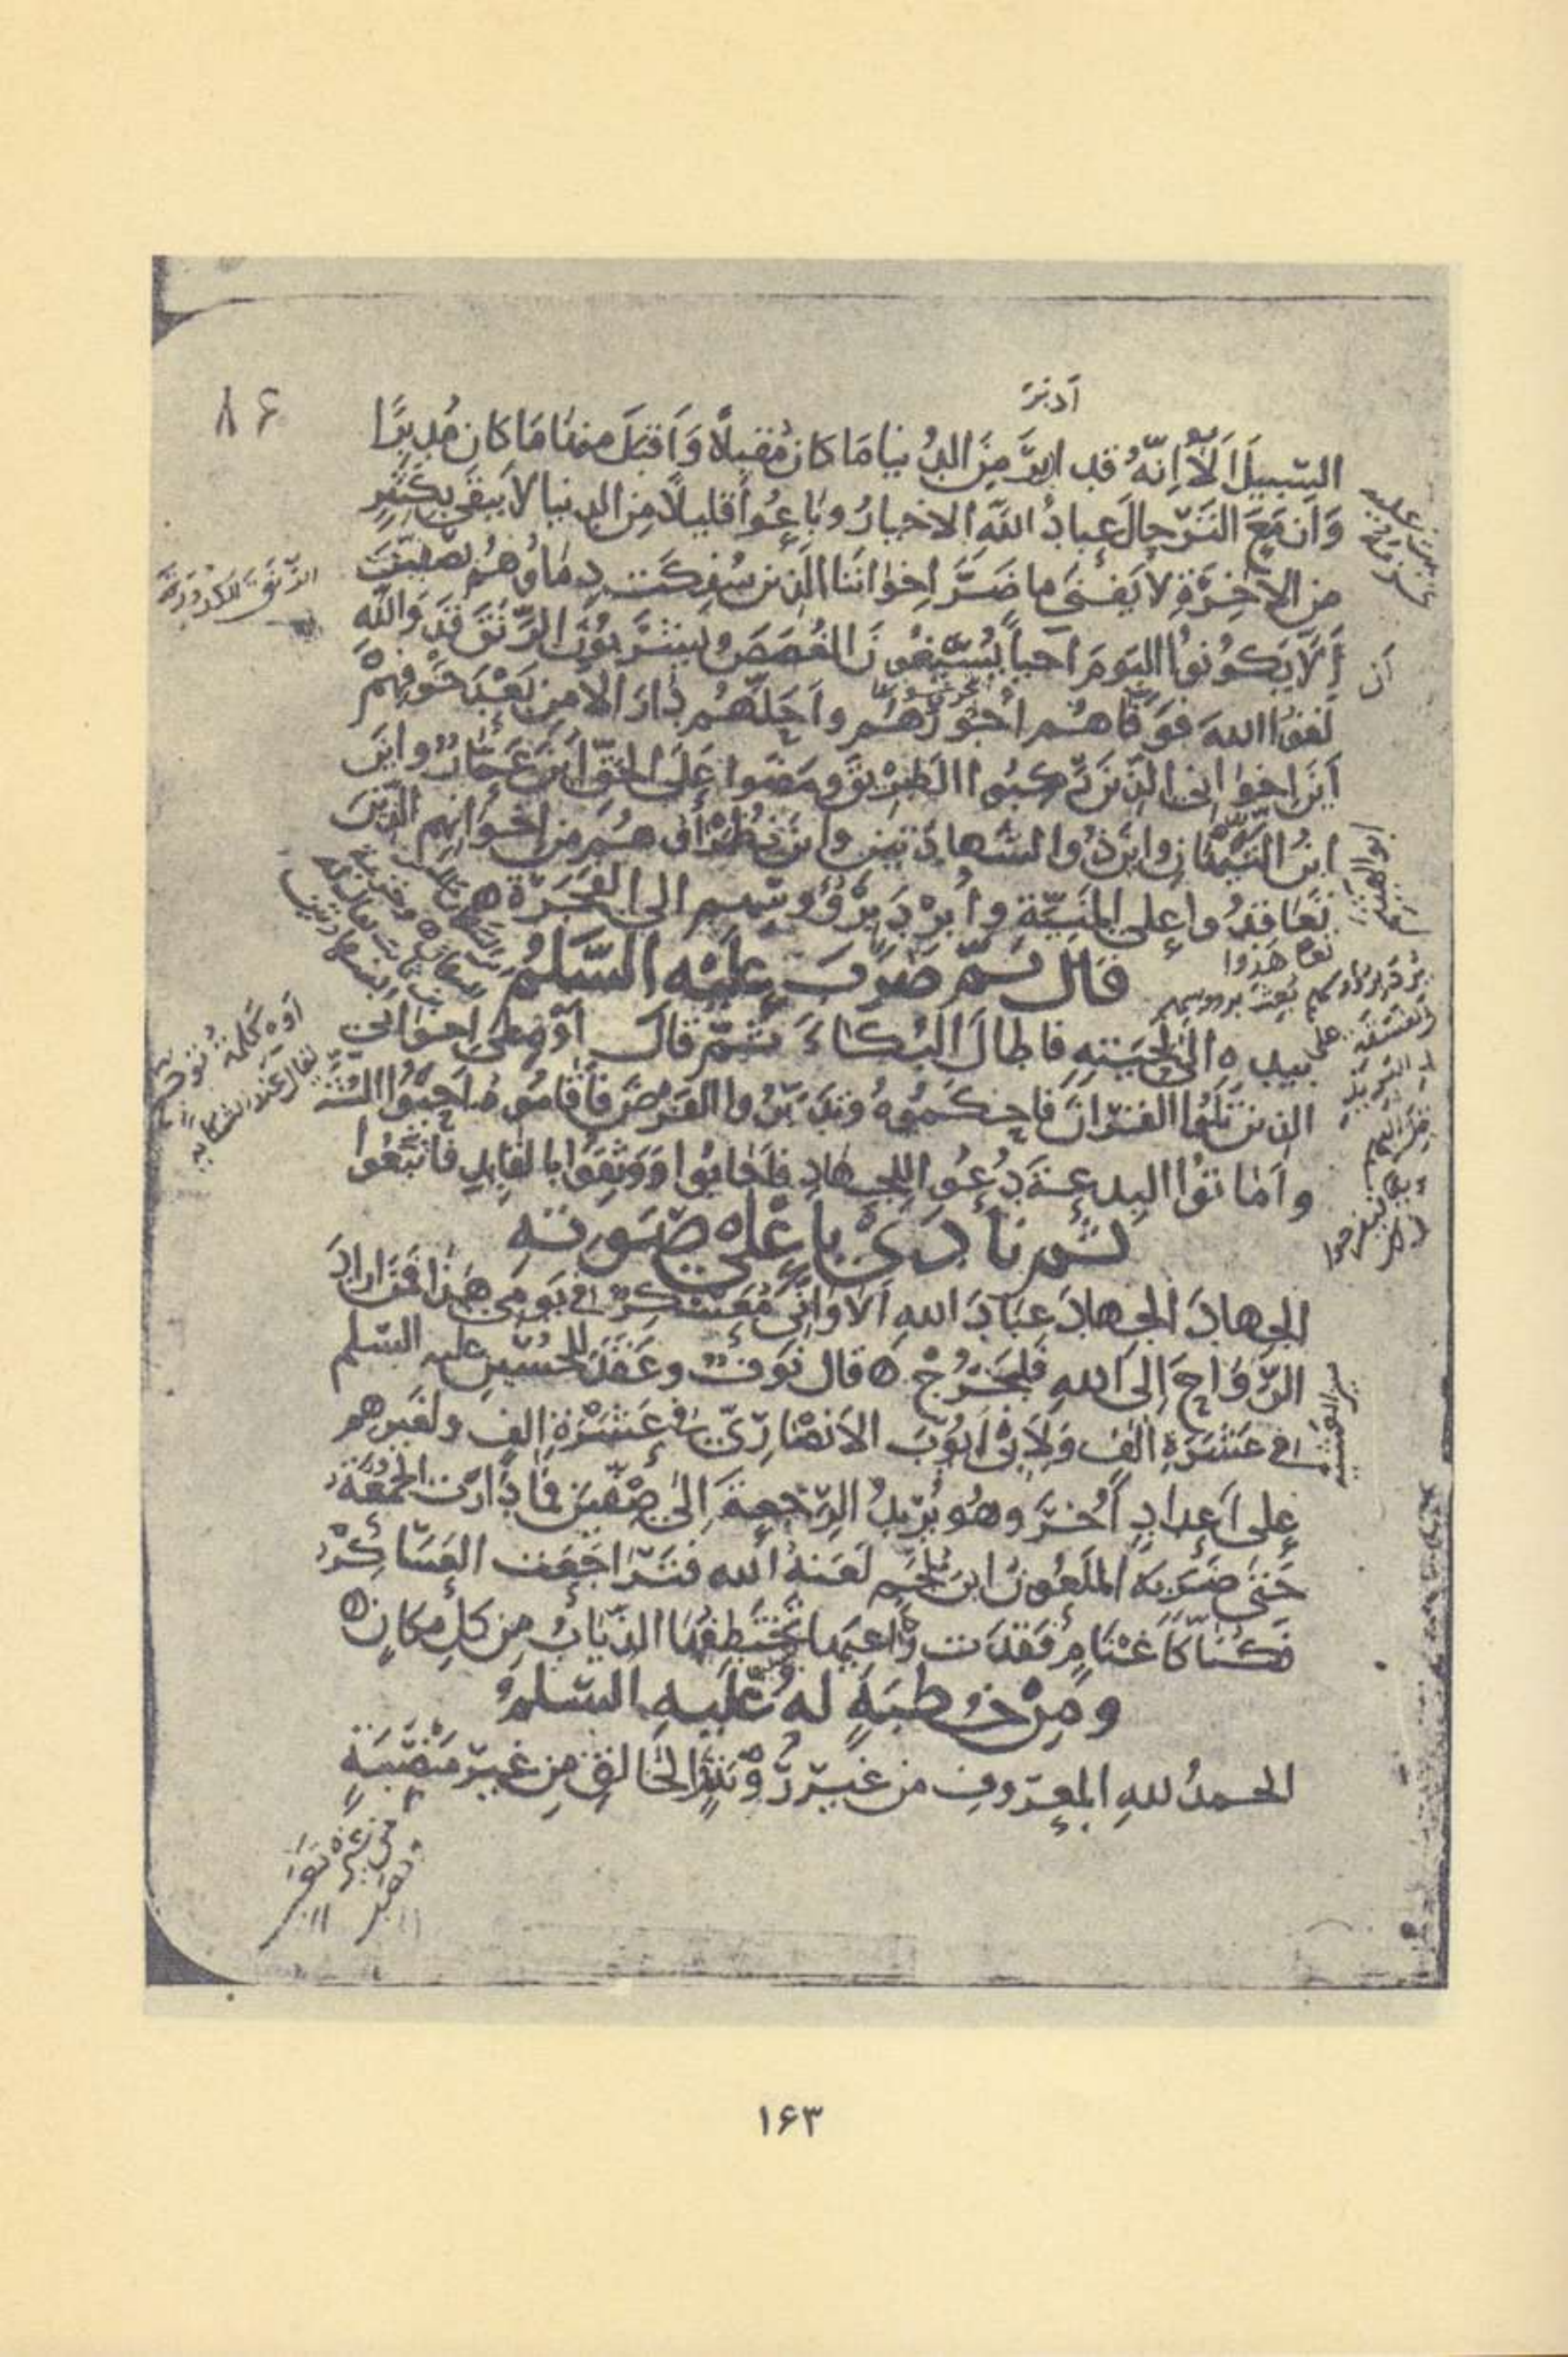 ادبر
۸۶
السّبيلَ اَلَا اِنَّهُ قد ادبرَ مِنَ الدُّنيا مَا كانَ مُقبِلًا وَاَقبَلَ منها مَا كان مُدبِرًا
وَازمَعَ التَرحالَ عِبادُ اللّهِ الاخيارُ وبَاعُوا قليلًا مِن الدنيا لا يبقى بكَثيرٍ
من الآخِرَةِ لا يَفنى ما ضَرَّ اِخوانَنا الذين سُفِكَت دِماؤهُم بصفّينَ
اَلّا يكونُوا اليومَ اَحياءً يُسيغُونَ الغُصَصَ ويَشرَبُونَ الرَّنْقَ قَد واللّهِ
لقُوا اللهَ فوفّاهُم اُجُورَهُم واَحَلّهُم دارَ الامنِ بَعْدَ خَوفِهِمْ
اَينَ اخوانى الذينَ ركبُوا الطريقَ ومضَوا عَلَى الحَقِّ اَينَ عَمّارٌ واَينَ
ابنُ التيِّهانِ واينَ ذُو الشهادَتينِ واينَ نُظَراؤُهُم مِن اِخوانِهِم الذينَ
تَعَاقدُوا على المَنِيّةِ واُبرِدَ برُؤُوسِهم الى الفَجَرَةِ
تعاهدوا
قال ثمّ ضرَبَ عليه السَّلمُ
بيده الى لِحْيَتِهِ فاطالَ البُكاءَ ثمّ قالَ اَوْهِ على اِخوانى
الذين تَلَوُا القرانَ فاحكَمُوهُ وتدَبّرُوا الفَرضَ فَاَقامُوهُ اَحيَوُا السُّنَّةَ
واَماتُوا البدعةَ دُعُوا للجهادِ فَاَجابُوا وَوَثِقُوا بالقايِدِ فاتّبعُوا
ثم نادى باعلى صَوته
الجهادَ الجهادَ عِبَادَ اللهِ اَلا وَاِنّى مُعَسْكِرٌ فى يَومى هَذا فَمَن ارادَ
الرّوَاحَ اِلى اللهِ فليَخرُجْ قال نَوفٌ وعَقَدَ للحُسَينِ عليه السّلم
فى عَشَرَةِ الفٍ ولاَبى اَيُوبَ الاَنصارِىّ فى عَشَرَةِ الفٍ ولغيرهم
على اَعدادٍ اُخَرَ وهُو يُريدُ الرّجعةَ اِلى صفّينَ فما دَارَت الجُمُعَةُ
حَتى ضَرَبَهُ المَلعُونُ ابنُ مُلجَمٍ لَعَنهُ اللهُ فتَرَاجَعَت العَسَاكِرُ
فكُنّا كاَغْنامٍ فَقَدَت راعيَها تختَطِفُها الذّيابُ مِن كلِ مكانٍ
ومِنْ خُطبَةٍ لهُ عَلَيهِ السّلمُ
الحمدُ للهِ المعرُوفِ من غيرِ رُؤْيَةٍ الخالِقِ مِن غيرِ مَنْصَبَةٍ
الرّنق الكدورة
اَن
ابو الهيثم
اوه كلمة توجع
يقال عند الشكاية
۱۶۳